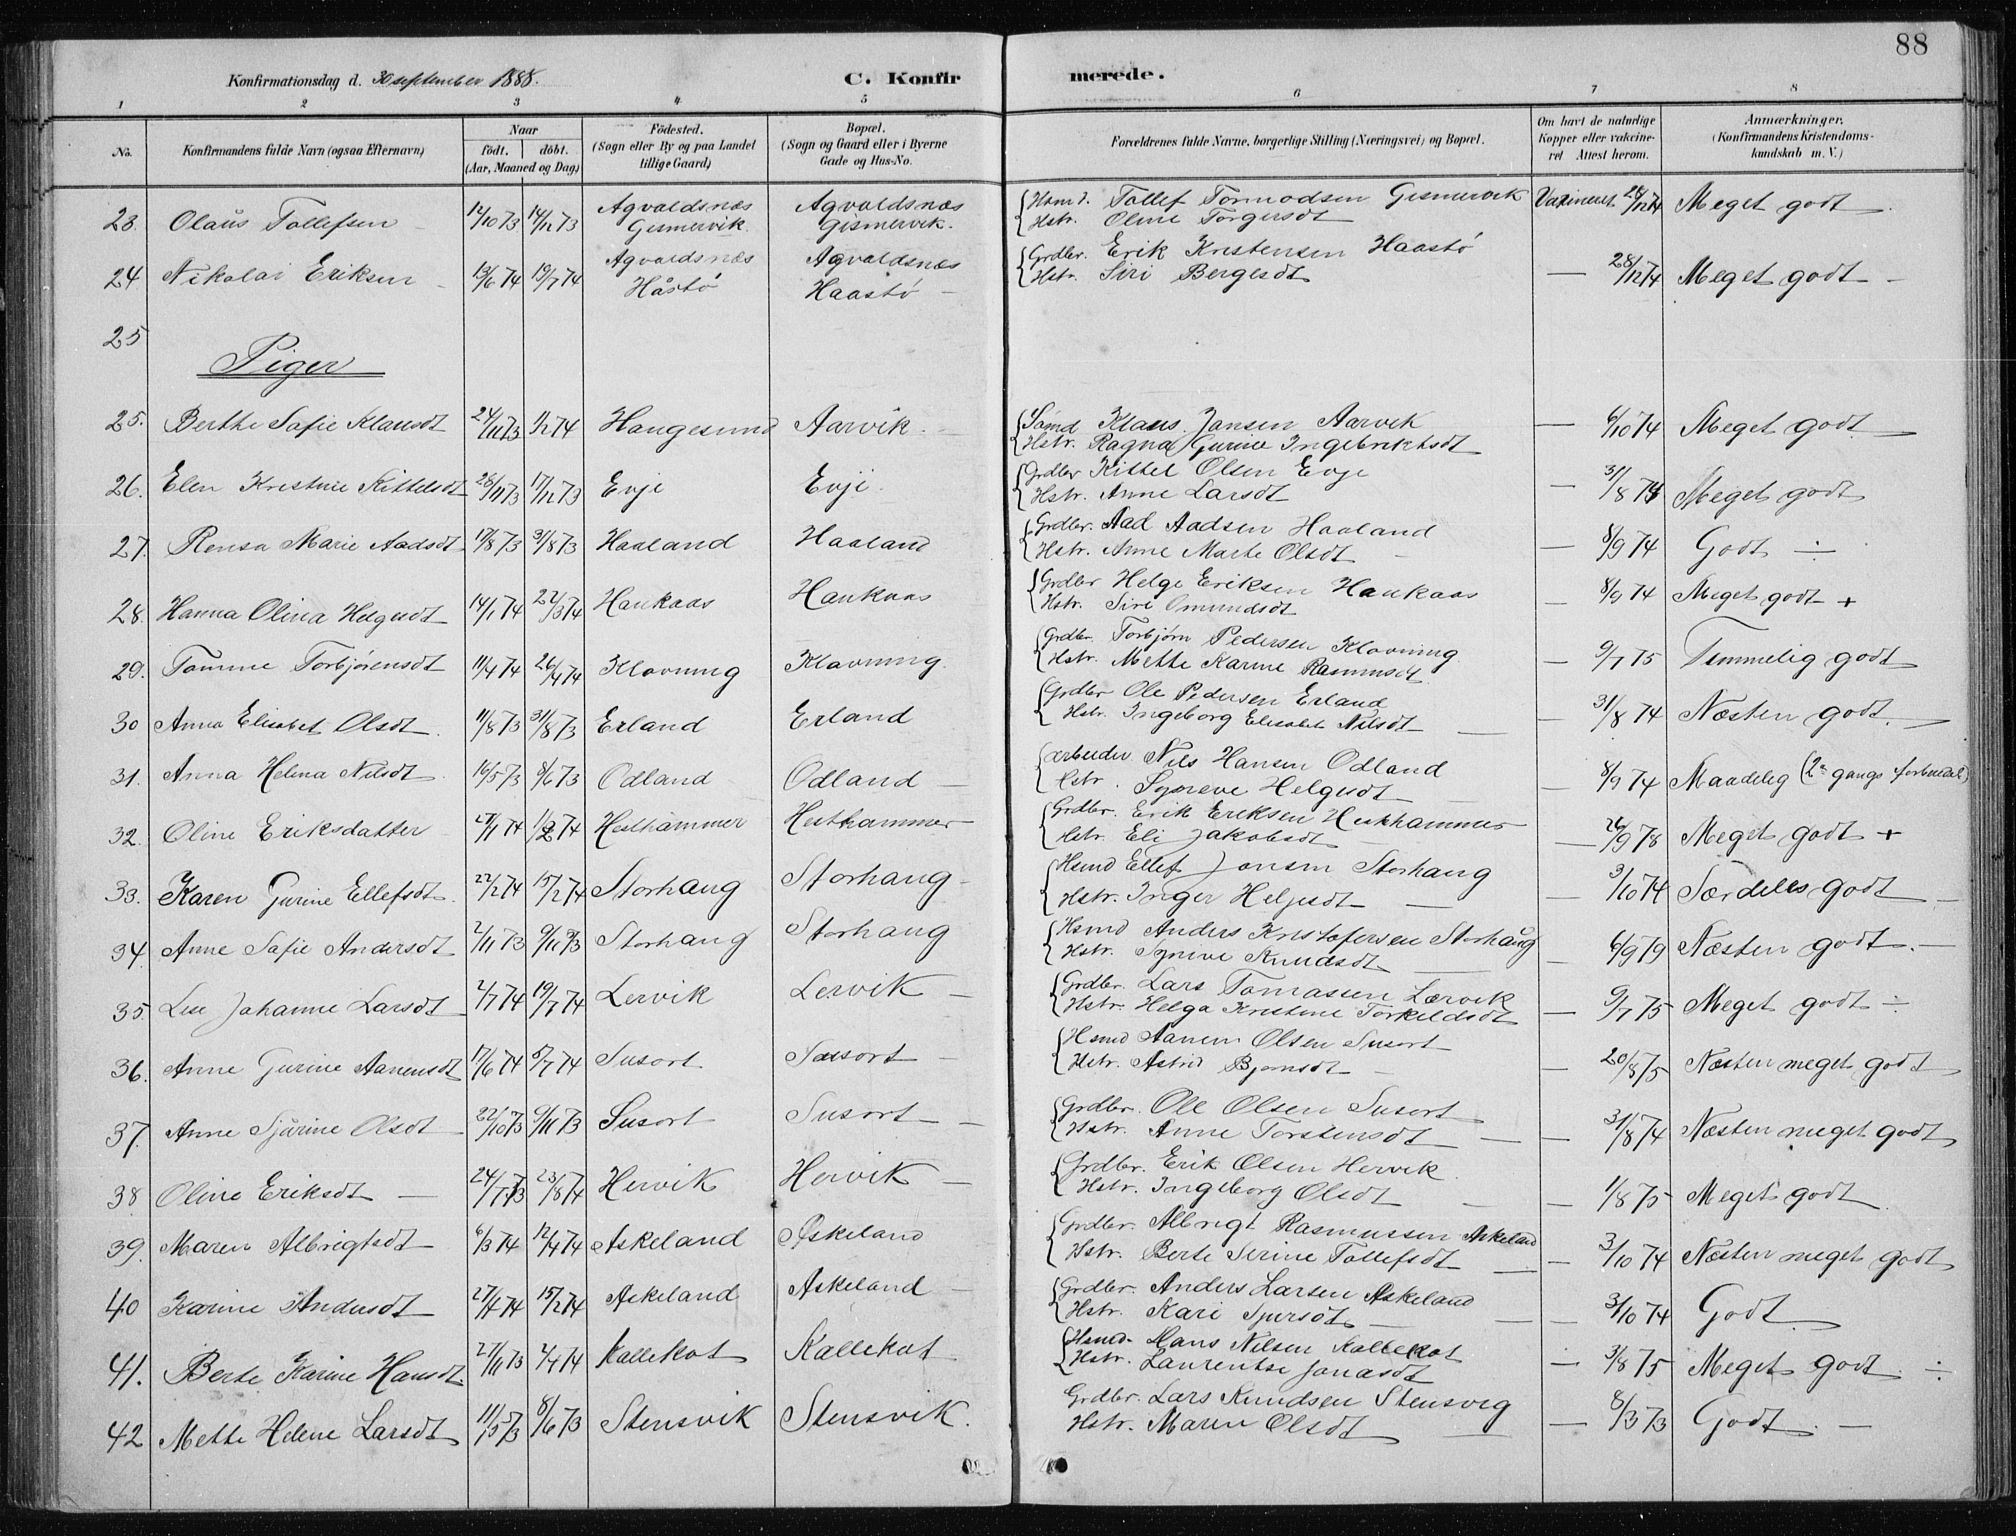 88
Konfirmationsdag d. 30 september 1888.
C. Konfirmerede.
1 2 3 4 5 6 7 8
No. Konfirmandens fulde Navn (ogsaa Efternavn) Naar födt. döbt. (Aar, Maaned og Dag) Födested. (Sogn eller By og paa Landet tillige Gaard) Bopæl. (Sogn og Gaard eller i Byerne Gade og Hus-No. Forældrenes fulde Navne, borgerlige Stilling (Næringsvei) og Bopæl. Om havt de naturlige Kopper eller vakcineret Attest herom. Anmærkninger. (Konfirmandens Kristendomskundskab m. V.)
23. Olaus Tollefsen 14/10 73 14/12 73 Agvaldsnæs Gismervik. Agvaldsnæs Gismervik. Hsmd. Tollef Tormodsen Gismervik Hstr. Oline Torgersdt Vaxineret 28/12 74 Meget godt
24 Nikolai Eriksen 13/6 74 19/7 74 Agvaldsnæs Håstö Agvaldsnæs Haastö Grdbr. Erik Kristensen Haastö Hstr. Siri Bergesdt — 28/12 74 Meget godt
25
Piger
25. Berthe Safie Klausdt 24/11 73 1/2 74 Haugesund Aarvik. Klaus Jansen Aarvik Hstr. Ragna Gurine Ingebriktsdt — 6/10 74 Meget godt
26. Elen Kristine Kittelsdt 28/11 73 17/12 73 Evje Evje Grdbr Kittel Olsen Evje Hstr. Anne Larsdt — 31/8 74 Meget godt
27. Rensa Marie Aadsdt 17/8 73 31/8 73 Haaland Haaland Grdbr. Aad Aadsen Haaland Hstr. Anne Marte Olsdt — 8/9 74 Godt ÷
28. Hanna Olina Helgesdt 14/1 74 22/3 74 Haukaas Haukaas Grdbr Helge Eriksen Haukaas Hstr. Siri Omundsdt — 8/9 74 Meget godt +
29. Tomine Torbjørensdt 11/4 74 26/4 74 Klovning Klovning. Grdbr. Torbjørn Pedersen Klovning Hstr. Mette Karine Rasmusdt. — 9/7 75 Temmelig godt
30 Anna Elisabet Olsdt. 11/8 73 31/8 73 Erland Erland Grdbr Ole Pedersen Erland Hstr. Ingeborg Elisabet Nilsdt — 31/8 74 Næsten godt.
31. Anna Helena Nilsdt. 16/5 73 8/6 73 Odland Odland Arbeider Nils Hansen Odland Hstr. Synneve Helgesdt — 8/9 74 Maadelig (2n gangs forberedel)
32. Oline Eriksdatter 27/1 74 1/2 74 Hesthammer Hesthammer Grdbr. Erik Eriksen Hesthammer Hstr. Eli Jakobsdt — 26/9 78 Meget godt +
33. Karen Gurine Ellefsdt. 22/2 74 15/2 74 Storhaug Storhaug Hsmd Ellef Jonsen Storhaug Hstr. Inger Heljesdt — 3/10 74 Særdeles godt
34. Anne Safie Andersdt 2/11 73 9/11 73 Storhaug Storhaug Hsmd Anders Kristofersen Storhaug Hstr. Synneve Knudsdt. 6/9 79 Næsten godt.
35. Lise Johanne Larsdt 2/7 74 19/7 74 Lervik Lervik Grdbr. Lars Tomassen Lærvik Hstr. Helga Kristine Torkeldsdt — 9/7 75 Meget godt ÷
36. Anne Gurine Aanensdt 17/6 74 5/7 74 Susort Susort Hsmd Aanen Olsen Susort Hstr. Astrid Bjornsdt — 20/8 75 Næsten meget godt
37. Anne Sjurine Olsdt 22/10 73 9/11 73 Susort Susort Grdbr. Ole Olsen Susort Hstr. Anne Torstensdt — 31/8 74 Næsten meget godt
38 Oline Eriksdt 24/7 73 23/8 74 Hervik Hervik Grdbr. Erik Olsen Hervik Hstr. Ingeborg Olsdt — 1/8 75 Meget godt
39. Maren Albrigtsdt 6/3 74 12/4 74 Askeland Askeland Grdbr. Albrigt Rasmussen Askeland Hstr. Berte Serine Tollefsdt — 3/10 74 Næsten meget godt
40 Karine Andersdt 27/1 74 15/2 74 Askeland Askeland Grdbr. Anders Larsen Askeland Hstr. Kari Sjursdt — 3/10 74 Godt
41. Berte Karine Hansdt. 27/11 73 2/4 74 Kallekot Kallekot Hsmd. Hans Nilsen Kallekot Hstr. Laurentse Jonasdt — 3/8 75 Meget godt ÷
42 Mette Helene Larsdt 11/5 73 8/6 73 Stensvik Stensvik. Grdbr. Lars Knudsen Stensvig Hstr. Maren Olsdt — 8/3 73 Godt. —